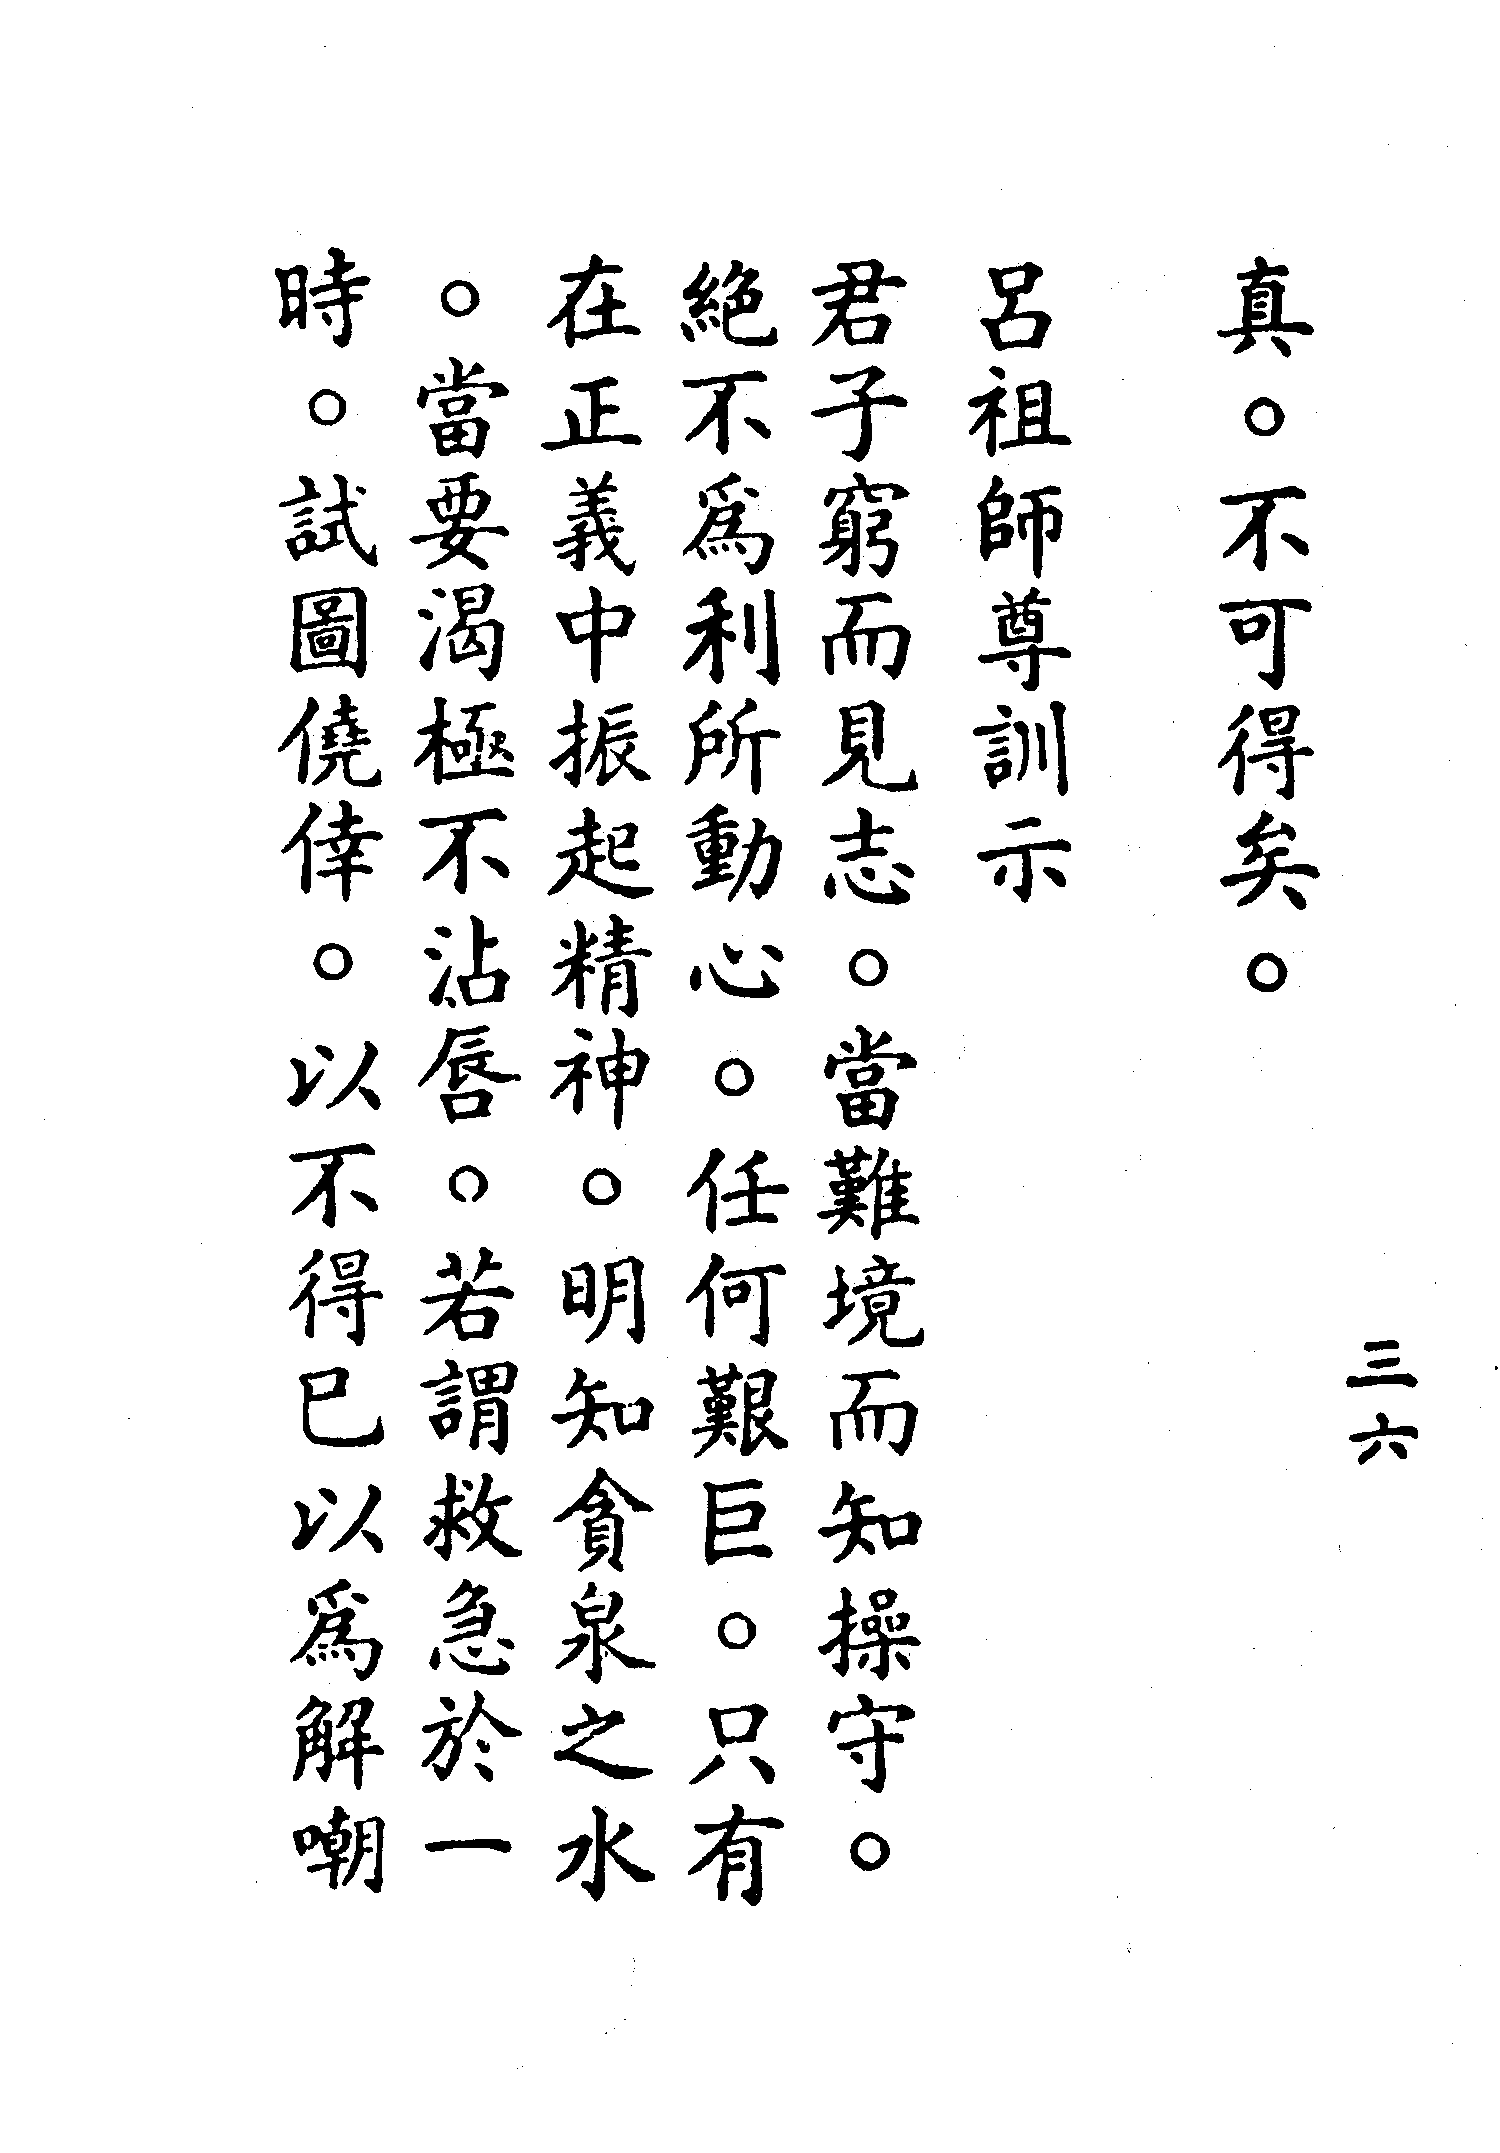 三六
真。不可得矣。
呂祖師尊訓示
君子窮而見志。當難境而知操守。
絕不爲利所動心。任何艱巨。只有
在正義中振起精神。明知貪泉之水
。當要渴極不沾唇。若謂救急於一
時。試圖僥倖。以不得已以爲解嘲